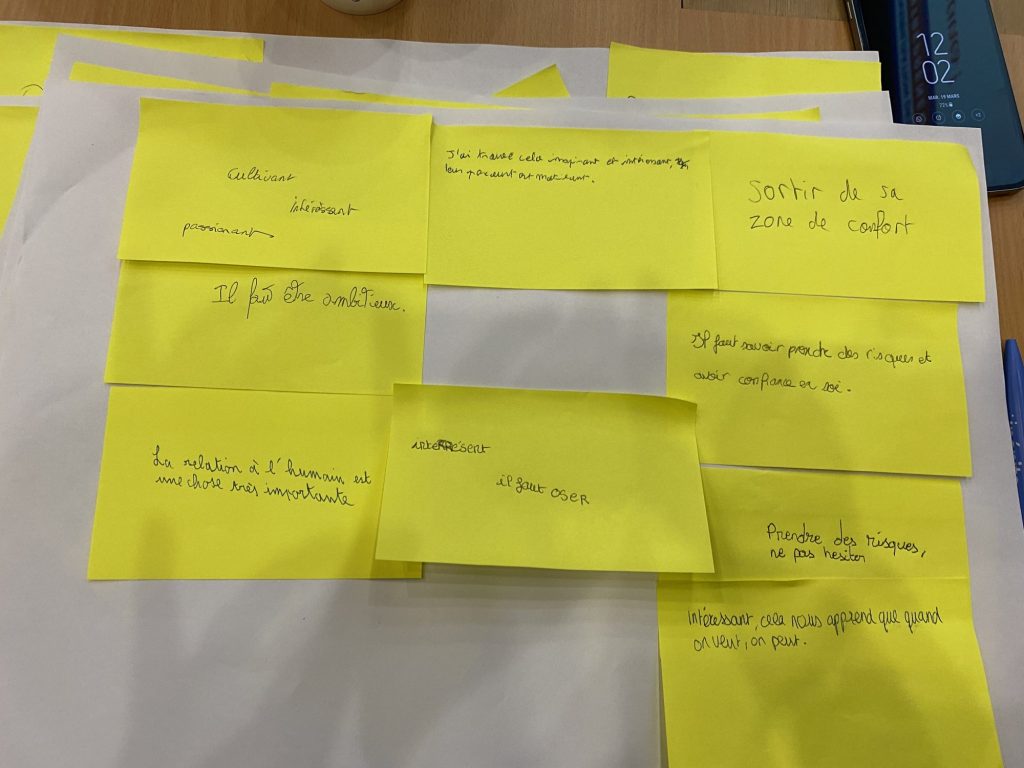 12
02
MAR. 19 MARS
Cultivant
intéréssant
passionant
J'ai trouvé cela inspirant et intéressant,
leur parcourt est motivant.
Sortir de sa
zone de confort
Il faù être ambitieux.
Il faut savoir prendre des risques et
avoir confiance en soi.
La relation à l'humain est
une chose très importante
interésent
il faut OSER
Prendre des risques,
ne pas hesiter
Intéressant, cela nous apprend que quand
on veut, on peut.